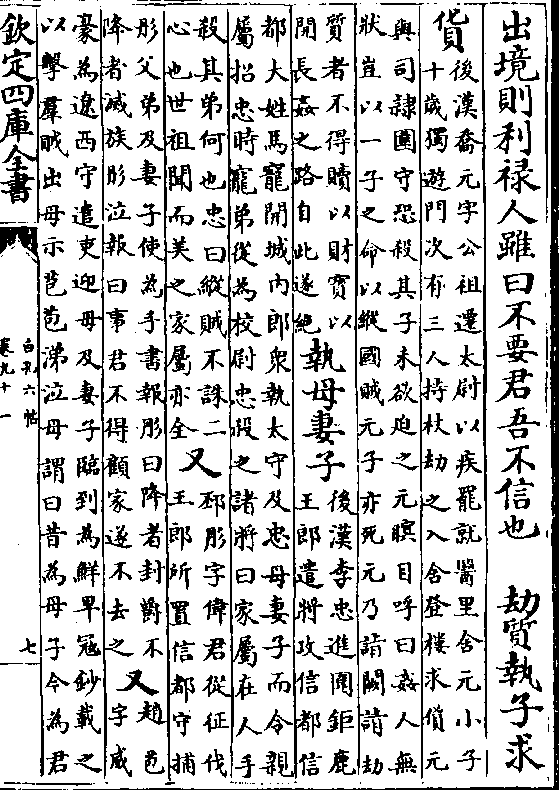 出境則利禄人雖曰不要君吾不信也　劫質執子求
貨
後漢喬元字公祖遷太尉以疾罷就醫里舍元小子
十歲獨遊門次有三人持杖劫之入舍登樓求償元
與司隸圍守恐殺其子未欲迫之元瞋目呼曰姦人無
狀豈以一子之命以縱國賊元子亦死元乃詣闕請劫
質者不得贖以財寳以
開長姦之路自此遂絶
執母妻子
後漢李忠進圍鉅鹿
王郎遣將攻信都信
都大姓馬寵開城内郎衆執太守及忠母妻子而令親
屬招忠時寵弟從為校尉忠殺之諸將曰家屬在人手
殺其弟何也忠曰縱賊不誅二
心也世祖聞而美之家屬亦全
又
邳彤字偉君從征伐
王郎所置信都守捕
彤父弟及妻子使為手書報彤曰降者封爵不
降者滅族彤泣報曰事君不得顧家遂不去之
又
趙苞
字威
豪為遼西守遣吏迎母及妻子臨到為鮮卑冦鈔載之
以擊羣賊出母示苞苞涕泣母謂曰昔為母子今為君
欽定四庫全書
白孔六帖
卷九十一
七